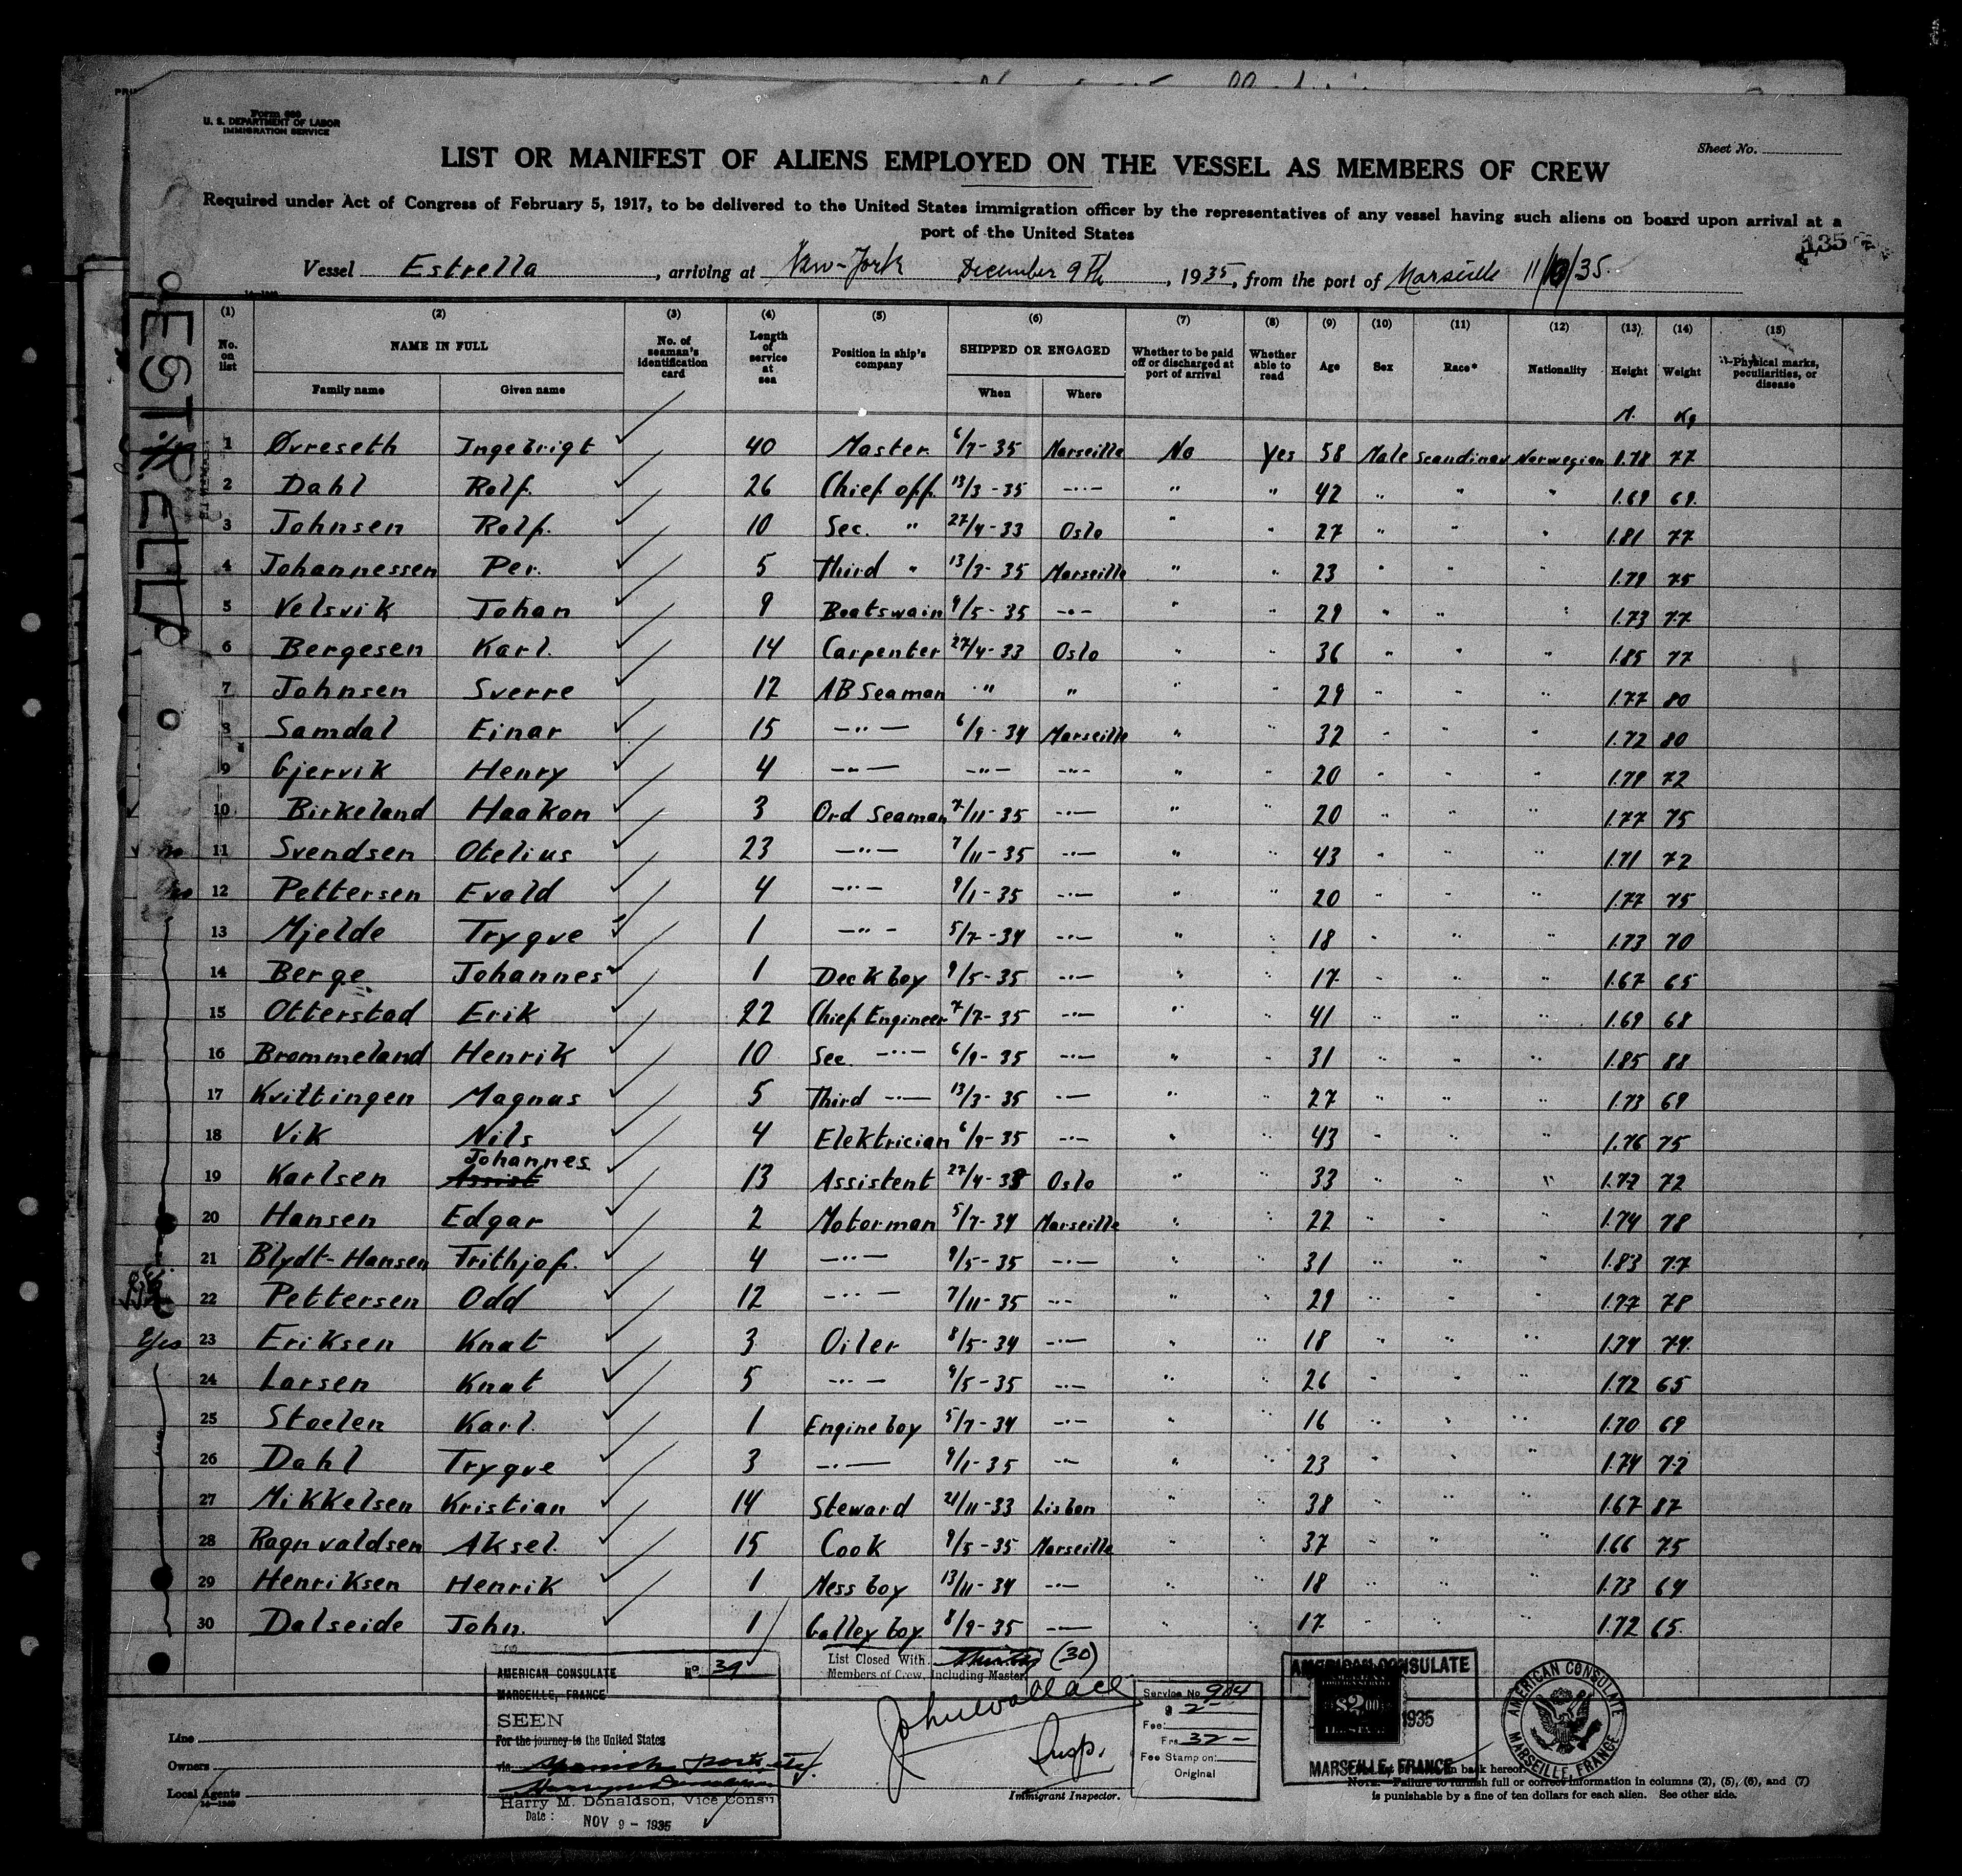 Form 689
U. S. DEPARTMENT OF LABOR
IMMIGRATION SERVICE
Sheet No.
LIST OR MANIFEST OF ALIENS EMPLOYED ON THE VESSEL AS MEMBERS OF CREW
Required under Act of Congress of February 5, 1917, to be delivered to the United States immigration officer by the representatives of any vessel having such aliens on board upon arrival at a
port of the United States
135
Vessel Estrella, arriving at New-York December 9th, 1935, from the port of Marseille
ESTRELLA
(1) (2) (3) (4) (5) (6) (7) (8) (9) (10) (11) (12) (13) (14) (15)
No. on list NAME IN FULL Family name Given name No. of seaman's identification card Length of service at sea Position in ship's company SHIPPED OR ENGAGED When Where Whether to be paid off or discharged at port of arrival Whether able to read Age Sex Race* Nationality Height Weight Physical marks, peculiarities, or disease
M. Kg
1 Øvreseth Ingebrigt 40 Master 6/7-35 Marseille No Yes 58 Male Scandinav Norwegian 1.78 77
2 Dahl Rolf. 26 Chief off. 13/3-35 -"- " " 42 " " " 1.69 69
3 Johnsen Rolf. 10 Sec. " 27/4-33 Oslo " " 27 " " " 1.81 77
4 Johannessen Per. 5 Third " 13/3-35 Marseille " " 23 " " " 1.79 75
5 Velsvik Johan 9 Boatswain 9/5-35 -"- " " 29 " " " 1.73 77
6 Bergesen Karl. 14 Carpenter 27/4-33 Oslo " " 36 " " " 1.85 77
7 Johnsen Sverre 12 AB Seaman " " " " 29 " " " 1.77 80
8 Samdal Einar 15 -"- 6/9-34 Marseille " " 32 " " " 1.72 80
9 Gjervik Henry 4 -"- -"- -"- " " 20 " " " 1.79 72
10 Birkeland Haakon 3 Ord Seaman 7/11-35 -"- " " 20 " " " 1.77 75
11 Svendsen Otelius 23 -"- 7/11-35 -"- " " 43 " " " 1.71 72
12 Pettersen Evald 4 -"- 9/1-35 -"- " " 20 " " " 1.77 75
13 Mjelde Trygve 1 -"- 5/7-34 -"- " " 18 " " " 1.73 70
14 Berge Johannes 1 Deck boy 9/5-35 -"- " " 17 " " " 1.67 65
15 Otterstad Erik 22 Chief Engineer 7/7-35 -"- " " 41 " " " 1.69 68
16 Brommeland Henrik 10 Sec. -"- 6/9-35 -"- " " 31 " " " 1.85 88
17 Kvittingen Magnus 5 Third -"- 13/3-35 -"- " " 27 " " " 1.73 69
18 Vik Nils 4 Elektrician 6/9-35 -"- " " 43 " " " 1.76 75
Johannes
19 Karlsen Assist 13 Assistent 27/4-33 Oslo " " 33 " " " 1.77 72
20 Hansen Edgar 2 Motorman 5/7-34 Marseille " " 22 " " " 1.74 78
21 Blydt-Hansen Frithjof. 4 -"- 9/5-35 -"- " " 31 " " " 1.83 77
22 Pettersen Odd 12 -"- 7/11-35 -"- " " 29 " " " 1.77 78
Yes 23 Eriksen Knut 3 Oiler 8/5-34 -"- " " 18 " " " 1.74 74
24 Larsen Knut 5 -"- 9/5-35 -"- " " 26 " " " 1.72 65
25 Stoelen Karl. 1 Engine boy 5/7-34 -"- " " 16 " " " 1.70 69
26 Dahl Trygve 3 -"- 9/1-35 -"- " " 23 " " " 1.74 72
27 Mikkelsen Kristian 14 Steward 21/11-33 Lisbon " " 38 " " " 1.67 87
28 Ragnvaldsen Aksel 15 Cook 9/5-35 Marseille " " 37 " " " 1.66 75
29 Henriksen Henrik 1 Mess boy 13/11-34 -"- " " 18 " " " 1.73 64
30 Dalseide John. 1 Galley boy 8/9-35 -"- " " 17 " " " 1.72 65.
List Closed With Thirty (30)
Members of Crew, Including Master
AMERICAN CONSULATE No. 39
MARSEILLE, FRANCE
SEEN
For the journey to the United States
via Spanish ports
Harry M. Donaldson, Vice Consul
Date: NOV 9 - 1935
John Wallace
Insp.
Immigrant Inspector.
Service No. 984
$ 2-
Fee:
Frs 32-
Fee Stamp on:
Original
AMERICAN CONSULATE
$2.00
1935
MARSEILLE, FRANCE
AMERICAN CONSULATE MARSEILLE, FRANCE
Line
Owners
Local Agents
on back hereof.
NOTE.—Failure to furnish full or correct information in columns (2), (5), (6), and (7)
is punishable by a fine of ten dollars for each alien. See other side.